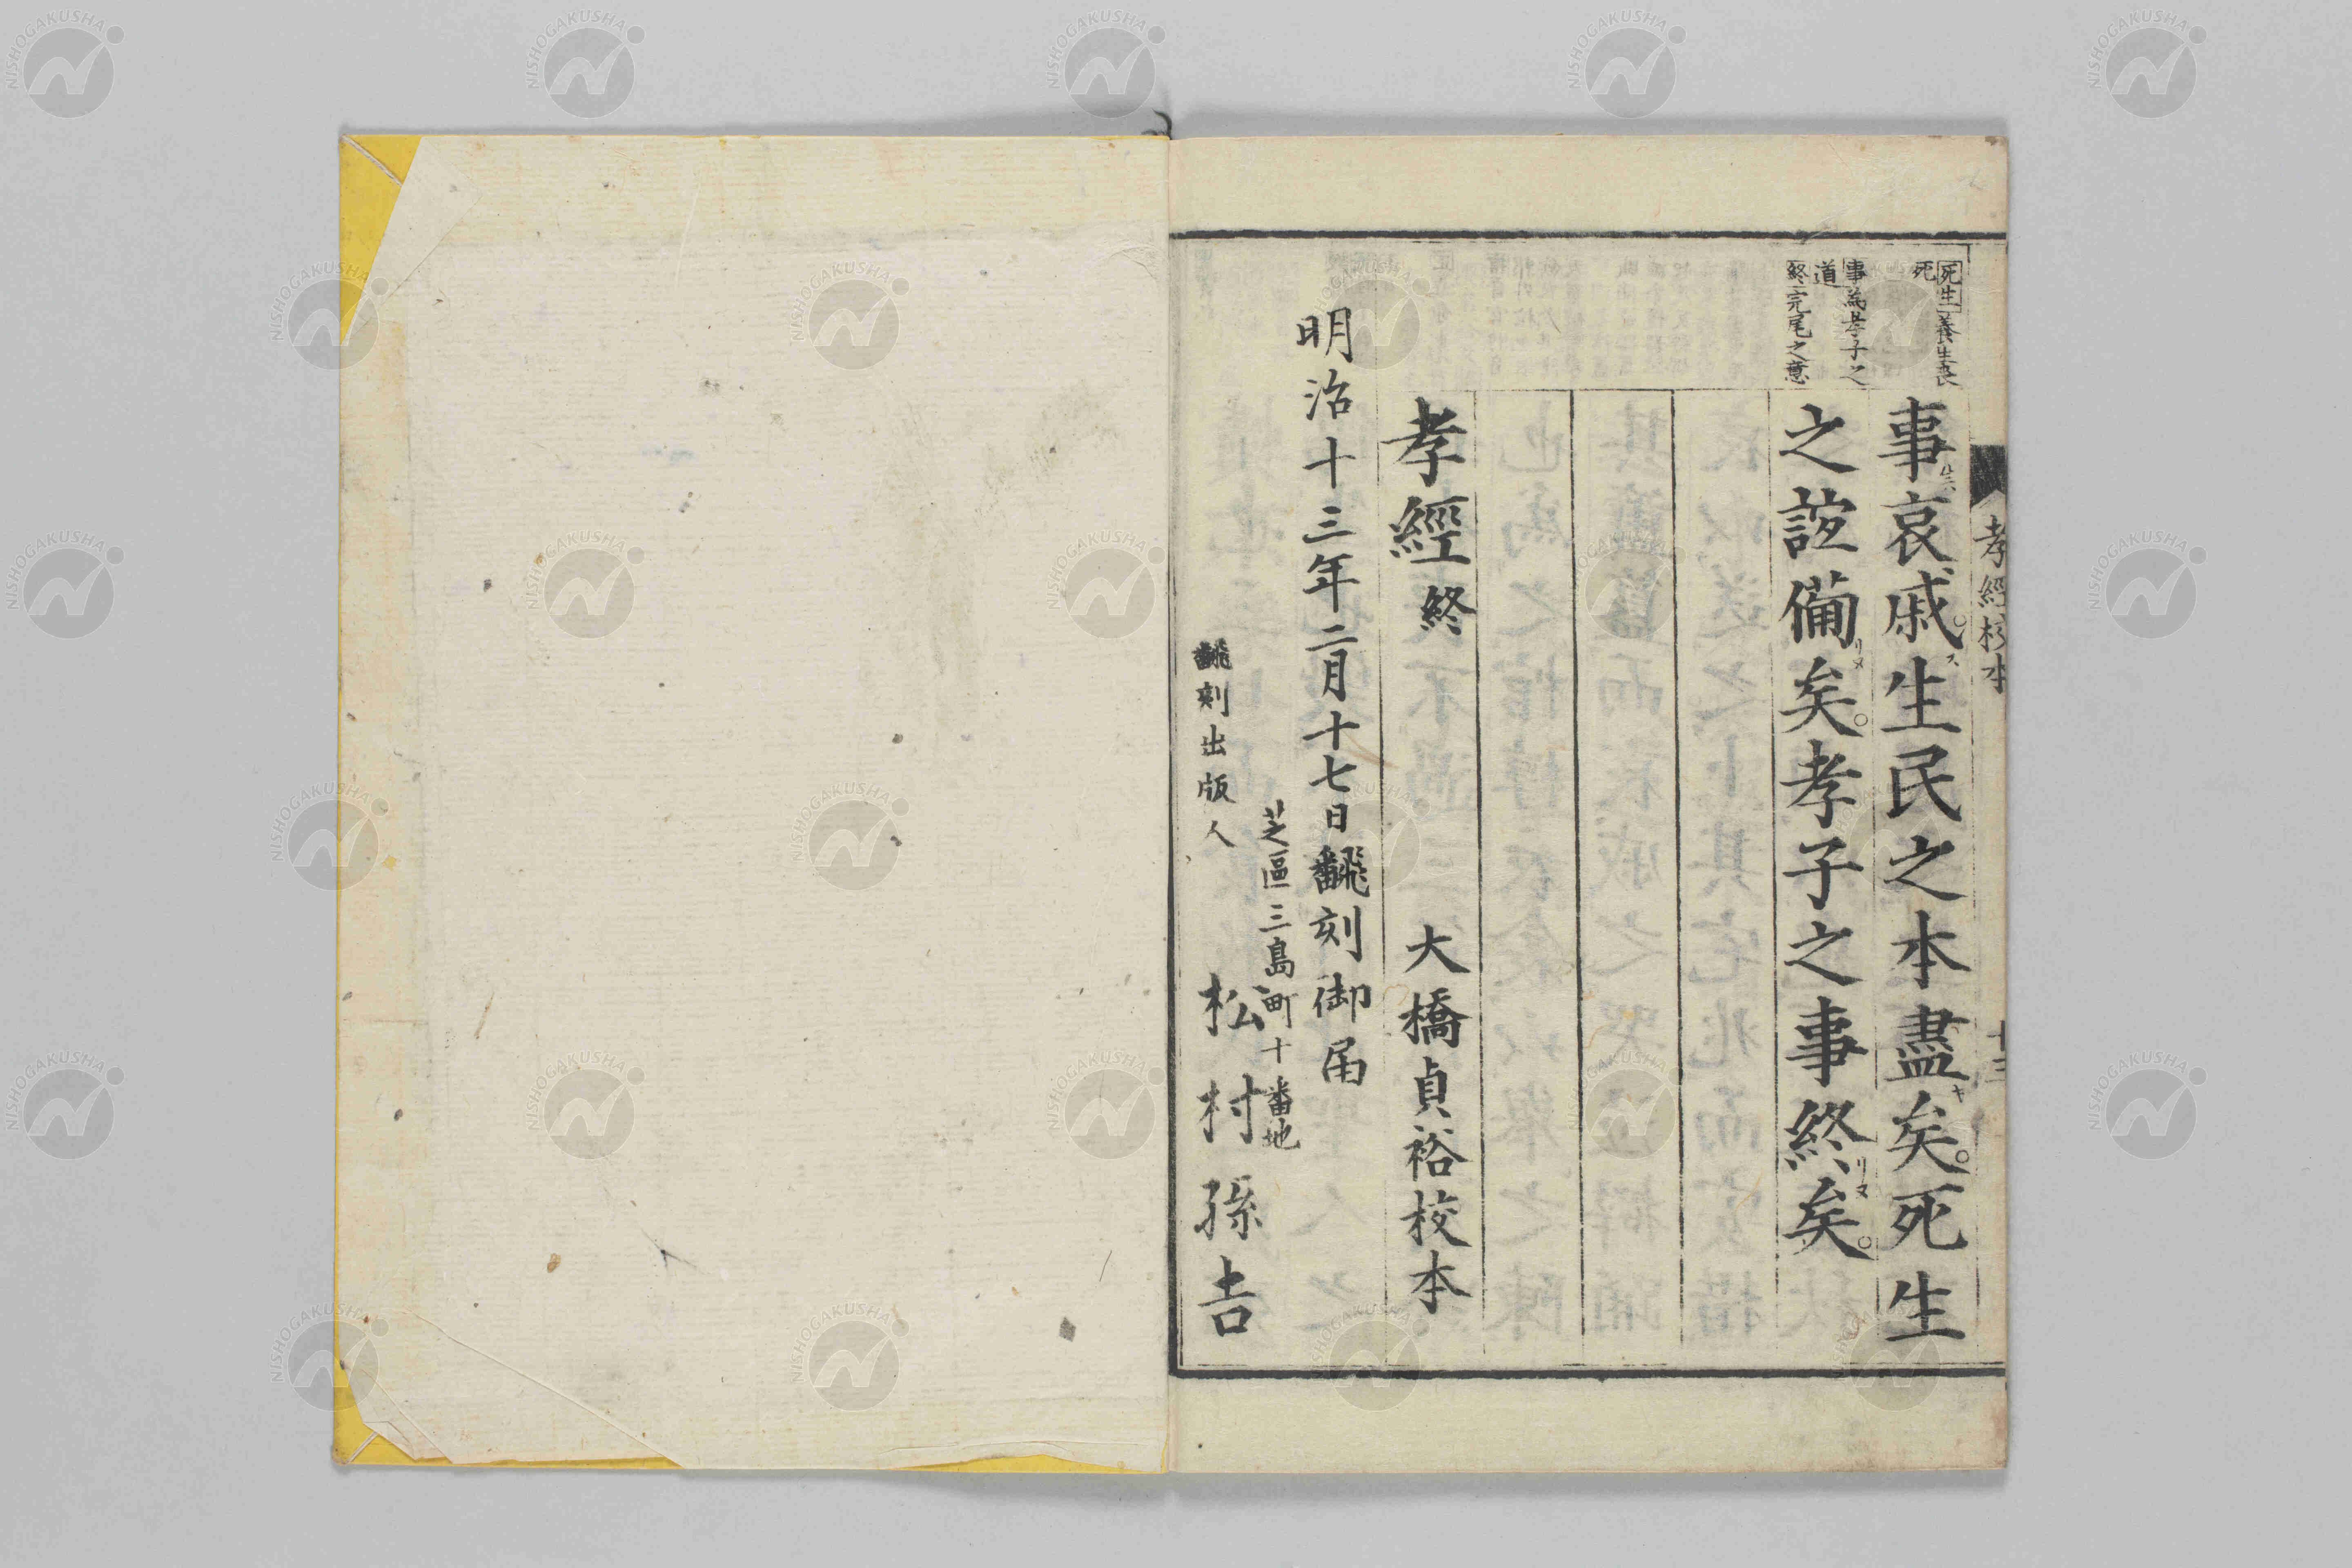 孝經校本
十三
死生養生喪
死
事為孝子之
道
終完尾之意
事哀戚生民之本盡矣。死生
之誼備矣。孝子之事終矣。
孝經終 大橋貞裕校本
明治十三年二月十七日飜刻御届
芝區三島町十番地
飜刻出版人 松村孫吉
NISHOGAKUSHA